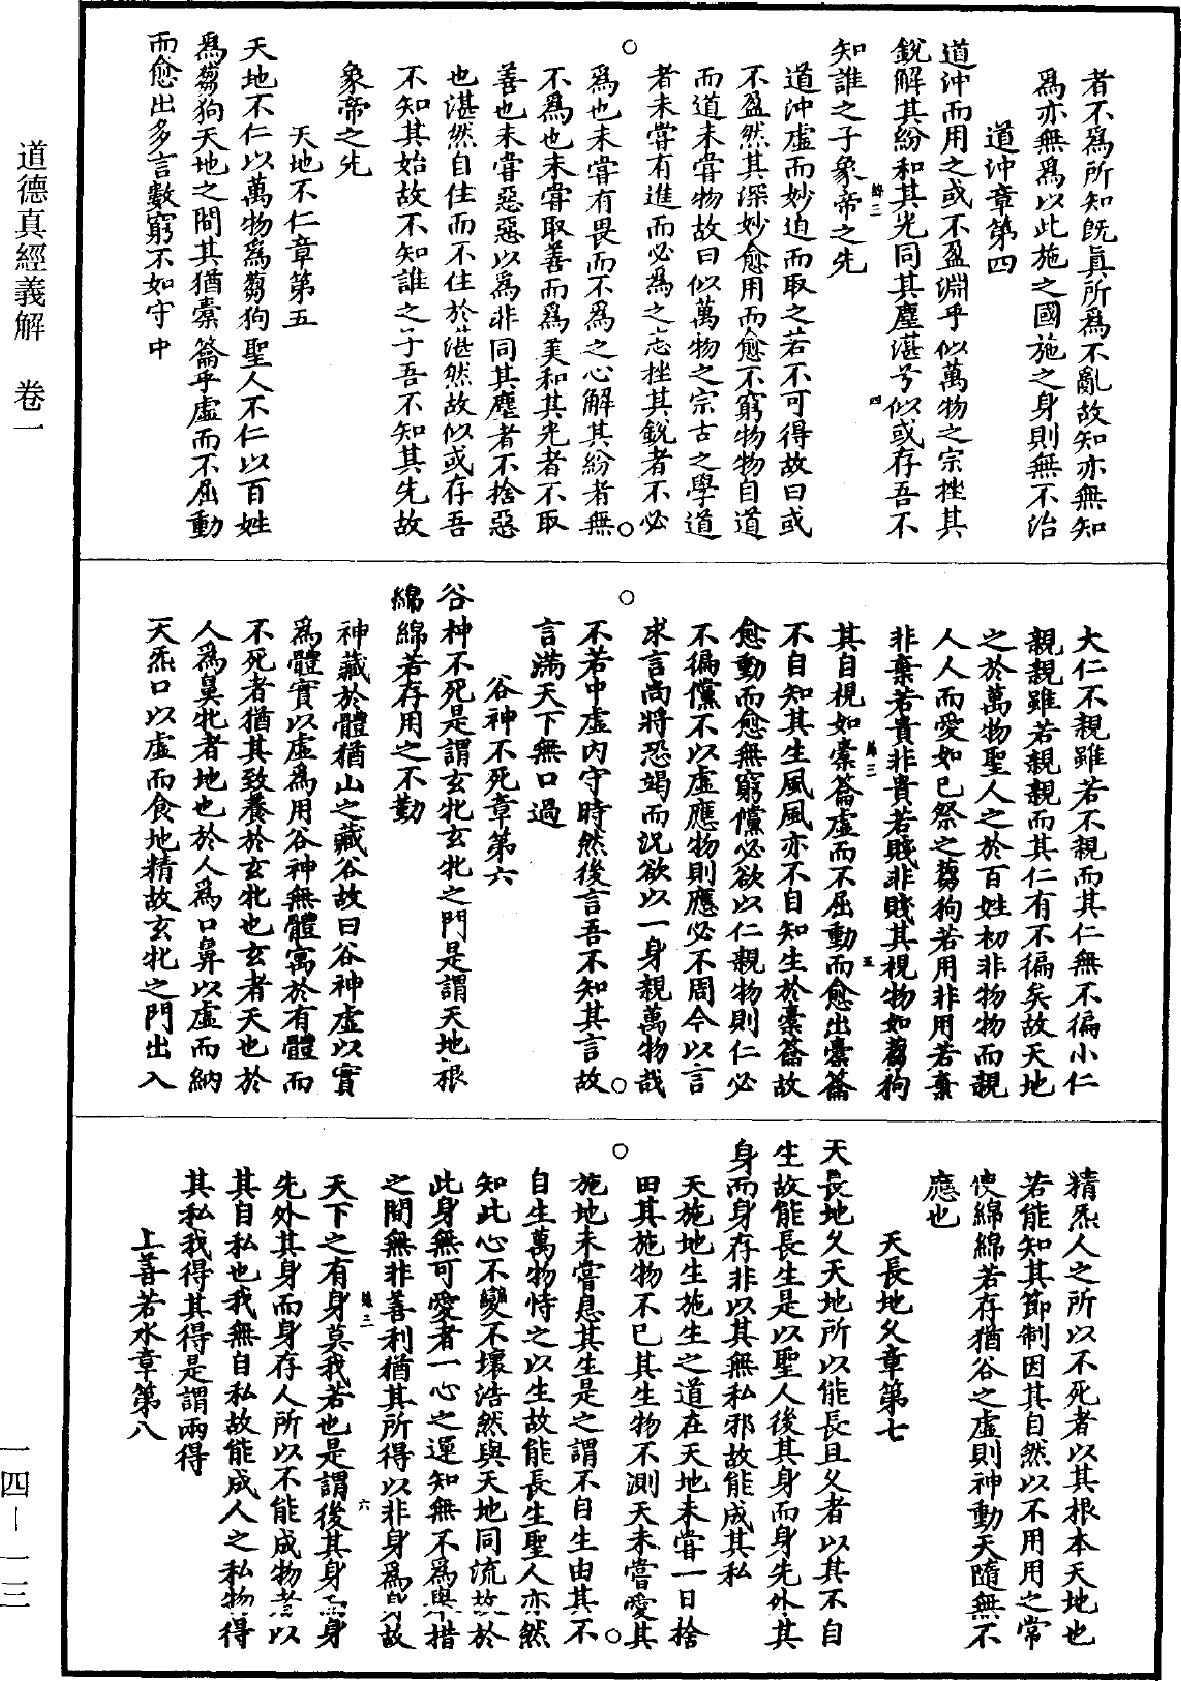 道德真經義解　卷一
者不爲所知旣眞所爲不亂故知亦無知
爲亦無爲以此施之國施之身則無不治
道沖章第四
道沖而用之或不盈淵乎似萬物之宗挫其
銳解其紛和其光同其塵湛兮似或存吾不
知誰之子象帝之先
道沖虛而妙迫而取之若不可得故曰或
不盈然其深妙愈用而愈不窮物物自道
而道未甞物故曰似萬物之宗古之學道
者未甞有進而必爲之志挫其銳者不必
爲也未甞有畏而不爲之心解其紛者無
不爲也未甞取善而爲美和其光者不取
善也未甞惡惡以爲非同其塵者不捨惡
也湛然自住而不住於湛然故似或存吾
不知其始故不知誰之子吾不知其先故
象帝之先
天地不仁章第五
天地不仁以萬物爲芻狗聖人不仁以百姓
爲芻狗天地之間其猶橐籥乎虛而不屈動
而愈出多言數窮不如守中
大仁不親雖若不親而其仁無不徧小仁
親親雖若親親而其仁有不徧矣故天地
之於萬物聖人之於百姓初非物物而親
人人而愛如已祭之芻狗若用非用若棄
非棄若貴非貴若賤非賤其視物如芻狗
其自視如橐籥虛而不屈動而愈出橐籥
不自知其生風風亦不自知生於橐籥故
愈動而愈無窮儻必欲以仁親物則仁必
不徧儻不以虛應物則應必不周今以言
求言尚將恐竭而況欲以一身親萬物哉
不若中虛內守時然後言吾不知其言故
言滿天下無口過
谷神不死章第六
谷神不死是謂玄牝玄牝之門是謂天地根
綿綿若存用之不勤
神藏於體猶山之藏谷故曰谷神虛以實
爲體實以虛爲用谷神無體寓於有體而
不死者猶其致養於玄牝也玄者天也於
人爲鼻牝者地也於人爲口鼻以虛而納
天炁口以虛而食地精故玄牝之門出入
精炁人之所以不死者以其根本天地也
若能知其節制因其自然以不用用之常
使綿綿若存猶谷之虛則神動天隨無不
應也
天長地久章第七
天長地久天地所以能長且久者以其不自
生故能長生是以聖人後其身而身先外其
身而身存非以其無私邪故能成其私
天施地生施生之道在天地未甞一日捨
田其施物不已其生物不測天未嘗愛其
施地未嘗息其生是之謂不自生由其不
自生萬物恃之以生故能長生聖人亦然
知此心不變不壞浩然與天地同流故於
此身無可愛者一心之運知無不爲舉措
之間無非善利猶其所得以非身爲身故
天下之有身莫我若也是謂後其身而身
先外其身而身存人所以不能成物者以
其自私也我無自私故能成人之私物得
其私我得其得是謂兩得
上善若水章第八
一四—一三